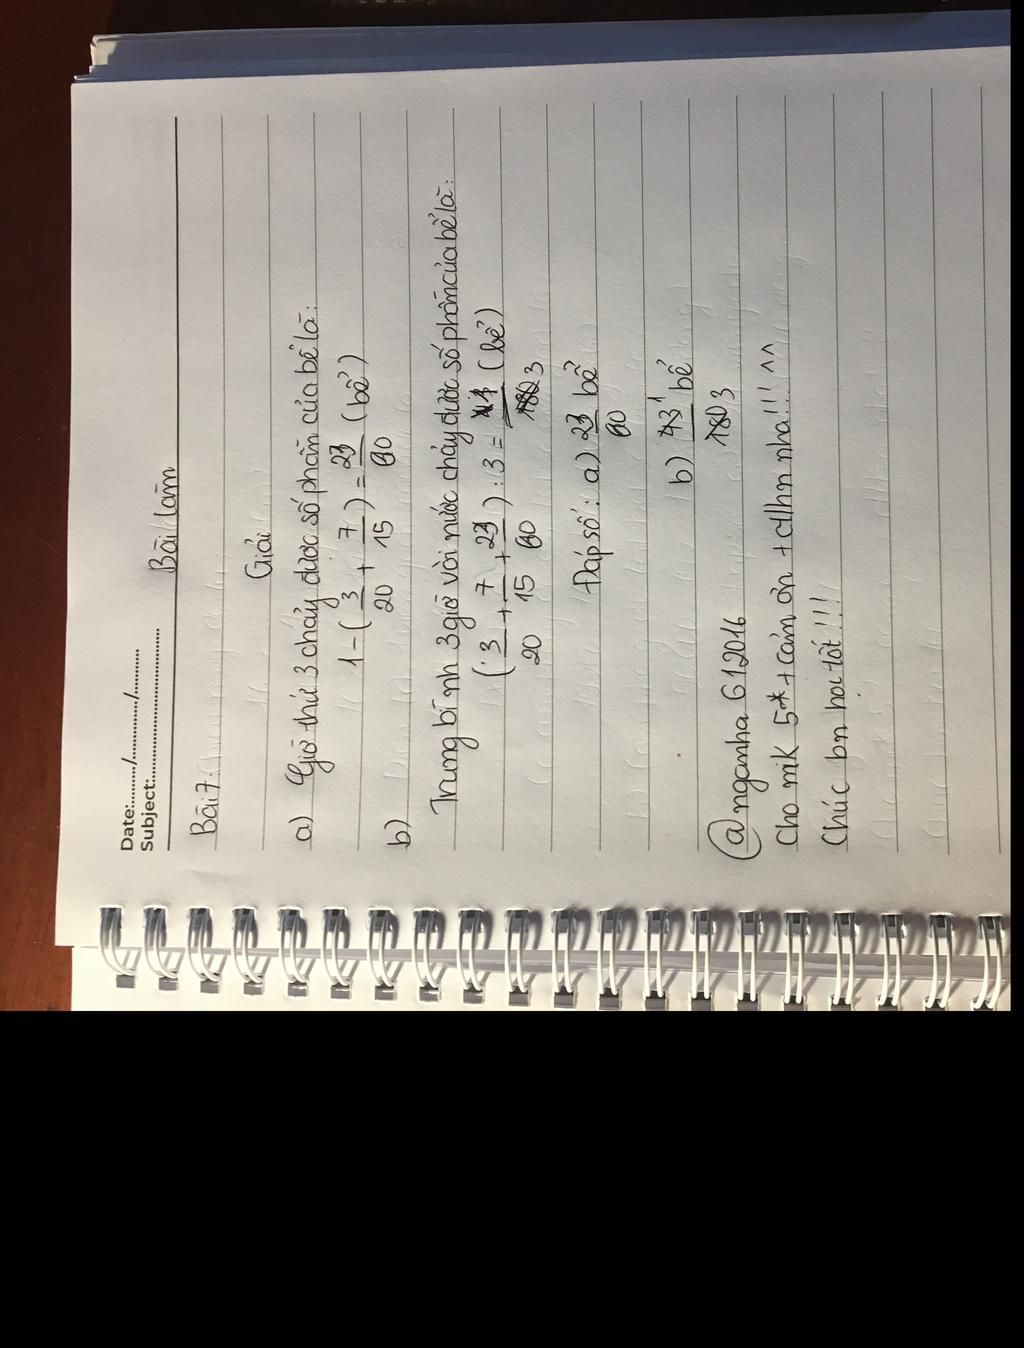 Date:........./............/.........
Subject:....................................
Bài làm
Bài 7:
Giải
a) Giờ thứ 3 chảy được số phần của bể là:
1 - ( 3/20 + 7/15 ) = 23/60 (bể)
b)
Trung bình 3 giờ vòi nước chảy được số phần của bể là:
( 3/20 + 7/15 + 23/60 ) : 3 = 1/3 (bể)
Đáp số: a) 23/60 bể
b) 1/3 bể
@nganha612016
Cho mik 5* + cảm ơn + ctlhn nha!!! ^^
Chúc bn học tốt!!!